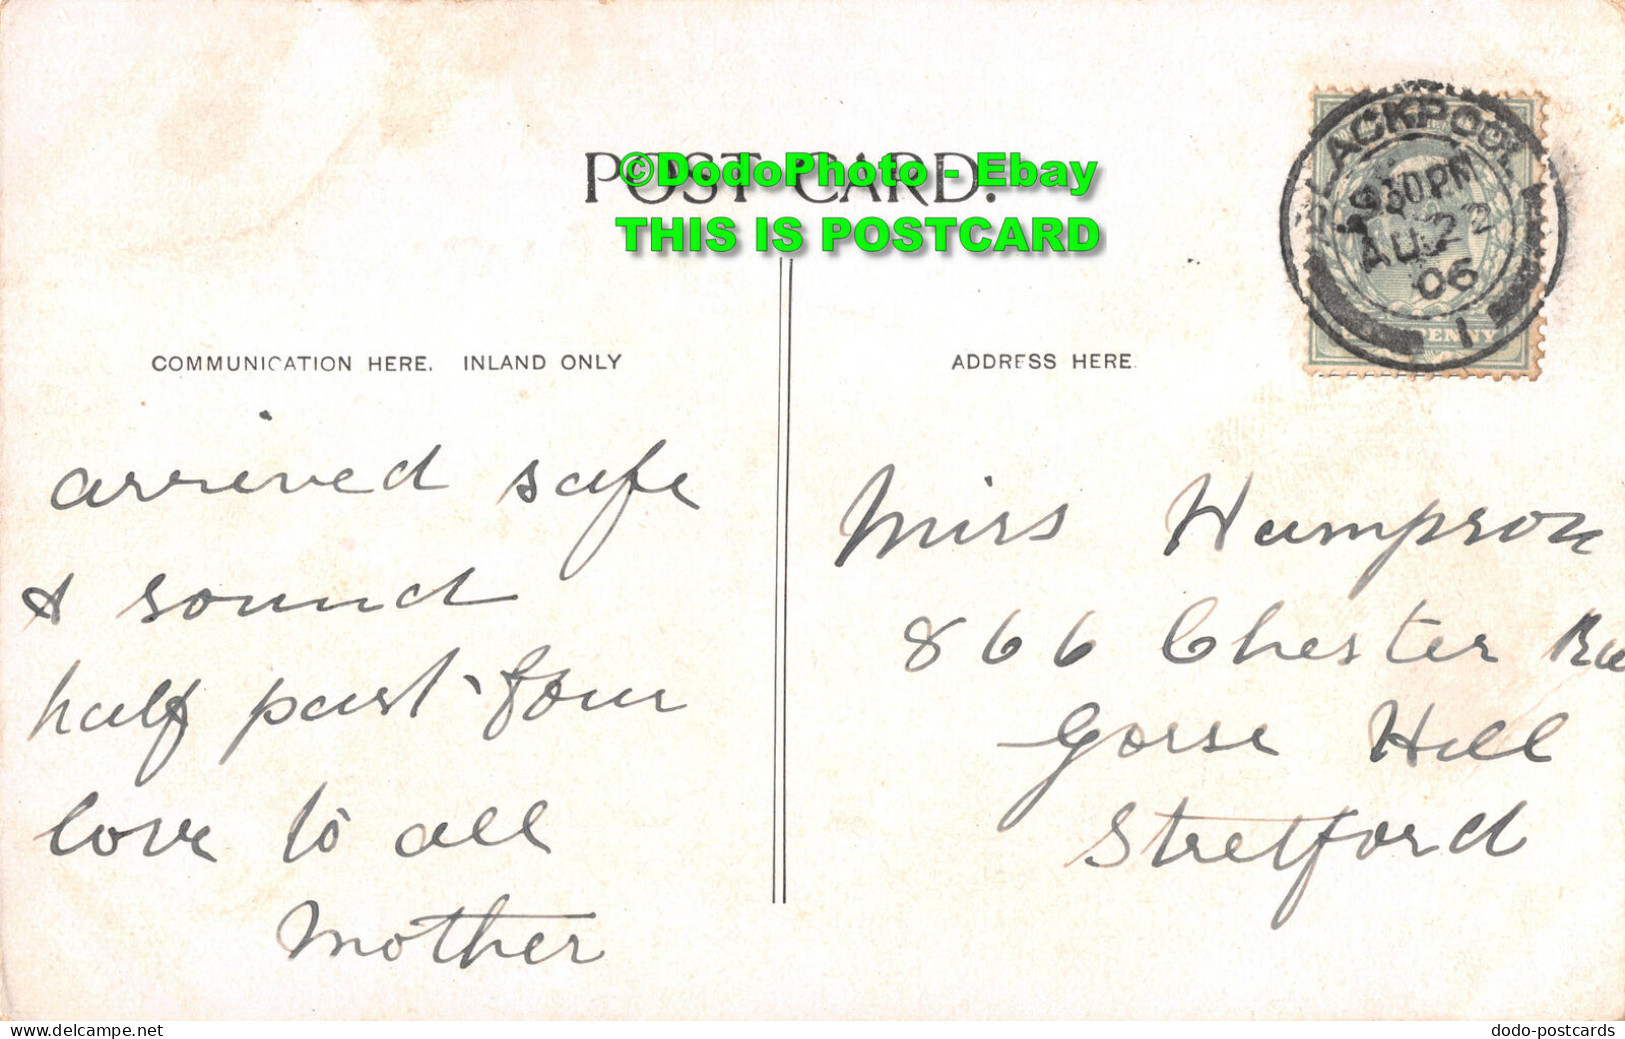 POST CARD.
©DodoPhoto - Ebay
THIS IS POSTCARD
BLACKPOOL
30PM
AU 22
06
1
PENNY
COMMUNICATION HERE. INLAND ONLY
ADDRESS HERE.
arrived safe
& sound
half past four
love to all
Mother
Miss Hampson
866 Chester
Gorse Hill
Stretford
www.delcampe.net
dodo-postcards